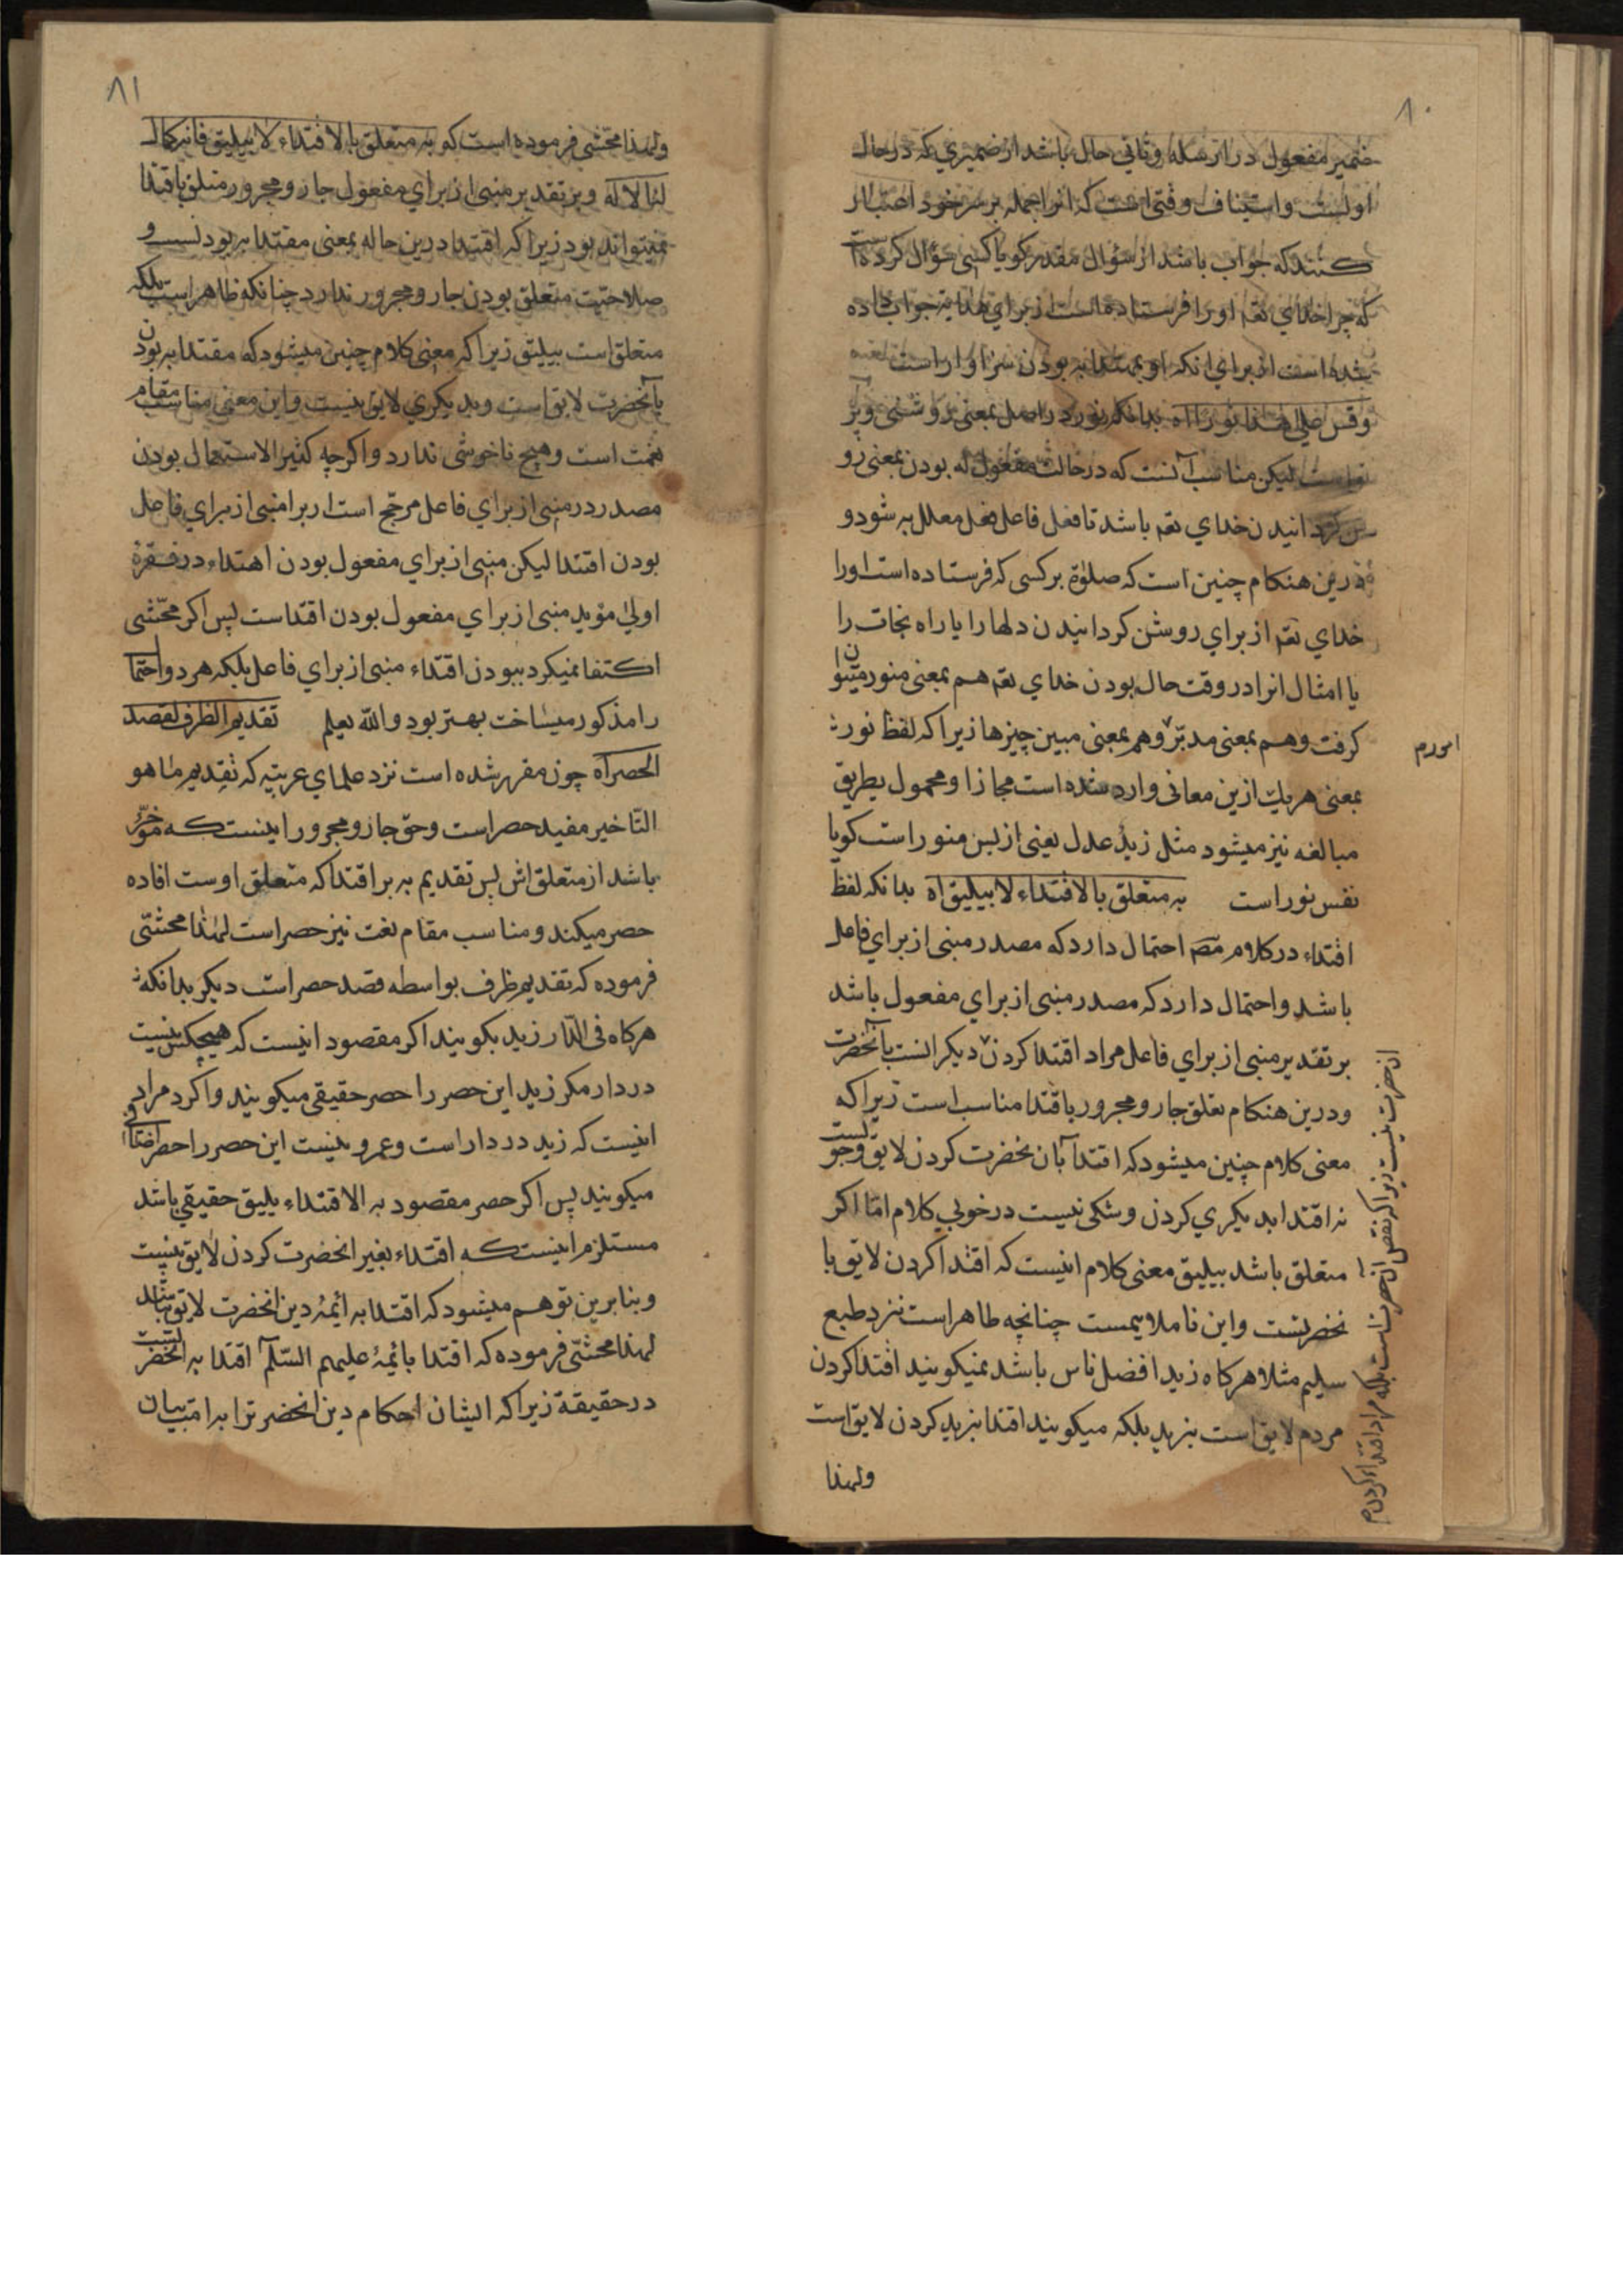 ۸۰
ضمیر مفعول در ارسله و ثانی حال باشد از ضمیری که در حال
اولست و استیناف وقتی است که انرا جمله بر سر خود اعتبار
کنند که جواب باشد از سؤال مقدر کویا کسی سؤال کرده است
که چرا خدای تعه اورا فرستاده است از برای هدایة جواب داده
شده است از برای انکه او بمقتدابه بودن سزاوار است
وقس علی هذا نورا اه بدانکه نور در اصل بمعنی روشنی و پر
تواست لیکن مناسب آنست که در حالت مفعول له بودن بمعنی رو
شن کردانیدن خدای تعه باشد تا فعل فاعل فعل معلل به شود و
درین هنکام چنین است که صلوة بر کسی که فرستاده است اورا
خدای تعه از برای روشن کردانیدن دلها را یا راه نجات را
یا امثال انرا در وقت حال بودن خدای تعه هم بمعنی منور میتوان
کرفت و هم بمعنی مدبر و هم بمعنی مبین چیزها زیرا که لفظ نور
بمعنی هر یك ازین معانی وارد شده است مجازا و محمول بطریق
مبالغه نیز میشود مثل زیدٌ عدل یعنی از بس منور است کویا
نفس نور است به متعلق بالاقتداء لا بیلیق اه بدانکه لفظ
اقتداء در کلام مصه احتمال دارد که مصدر مبنی از برای فاعل
باشد و احتمال دارد که مصدر مبنی از برای مفعول باشد
بر تقدیر مبنی از برای فاعل مراد اقتدا کردن دیکرانست بآنحضرت
و درین هنکام تعلق جار و مجرور باقتدا مناسب است زیرا که
معنی کلام چنین میشود که اقتدا بآن نحضرت کردن لایق و جو
نه اقتدا بدیکری کردن و شکی نیست در خوبی کلام امّا اکر
متعلق باشد بیلیق معنی کلام اینست که اقتدا کردن لایق با
نحضرتست و این ناملایمست چنانچه ظاهر است نزد طبع
سلیم مثلا هرکاه زید افضل ناس باشد نمیکویند اقتدا کردن
مردم لایق است بزید بلکه میکویند اقتدا بزید کردن لایق است
ولهذا
امور م
انحضرت نیست زیرا که نقص انحضرت است بلکه مراد اقتداء کردن م
۸۱
ولهذا محشی فرموده است که به متعلق بالاقتداء لا بیلیق فانه کمال
لنا لا له و بر تقدیر مبنی از برای مفعول جار و مجرور متعلق باقتدا
نمیتواند بود زیرا که اقتدا درین حاله بمعنی مقتدا به بودنست و
صلاحیت متعلق بودن جار و مجرور ندارد چنانکه ظاهر است بلکه
متعلق است بیلیق زیرا که معنی کلام چنین میشود که مقتدا به بودن
بآنحضرت لایق است و بدیکری لایق نیست و این معنی مناسب مقام
نعت است و هیچ ناخوشی ندارد و اکرچه کثیر الاستعمال بودن
مصدر در مبنی از برای فاعل مرجّح است از برا مبنی از برای فاعل
بودن اقتدا لیکن مبنی از برای مفعول بودن اهتداء در فقرة
اولی مؤید مبنی از برای مفعول بودن اقتداست پس اکر محشی
اکتفا نمیکرد ببودن اقتداء مبنی از برای فاعل بلکه هر دو احتما
را مذکور میساخت بهتر بود والله یعلم تقدیم الظرف لقصد
الحصر اه چون مقرر شده است نزد علمای عربیه که تقدیم ما هو
التاخیر مفید حصر است و حق جار و مجرور اینست که مؤخر
باشد از متعلق اش پس تقدیم به بر اقتدا که متعلق اوست افاده
حصر میکند و مناسب مقام نعت نیز حصر است لهذا محشی
فرموده که تقدیم ظرف بواسطه قصد حصر است دیکر بدانکه
هرکاه فی الدّار زید بکویند اکر مقصود اینست که هیچکس نیست
در دار مکر زید این حصر را حصر حقیقی میکویند و اکرد مراد
اینست که زید در دار است و عمرو نیست این حصر را حصر اضافی
میکویند پس اکر حصر مقصود به الاقتداء یلیق حقیقی باشد
مستلزم اینست که اقتداء بغیر انحضرت کردن لایق نیست
و بنابرین توهم میشود که اقتدا به ائمهٔ دین انحضرت لایق نباشد
لهذا محشی فرموده که اقتدا بائمهٔ علیهم السّلم اقتدا به انحضرتست
در حقیقة زیرا که ایشان احکام دین انحضرت را به امت بیان